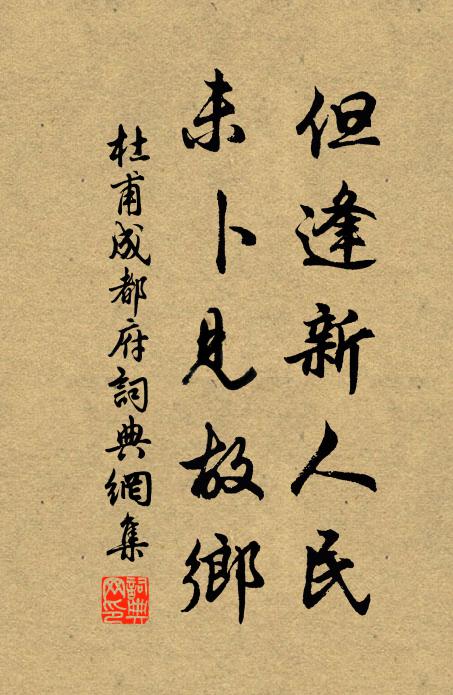 但逢新人民
未卜見故鄉
杜甫成都府詞典網集
詞典网印